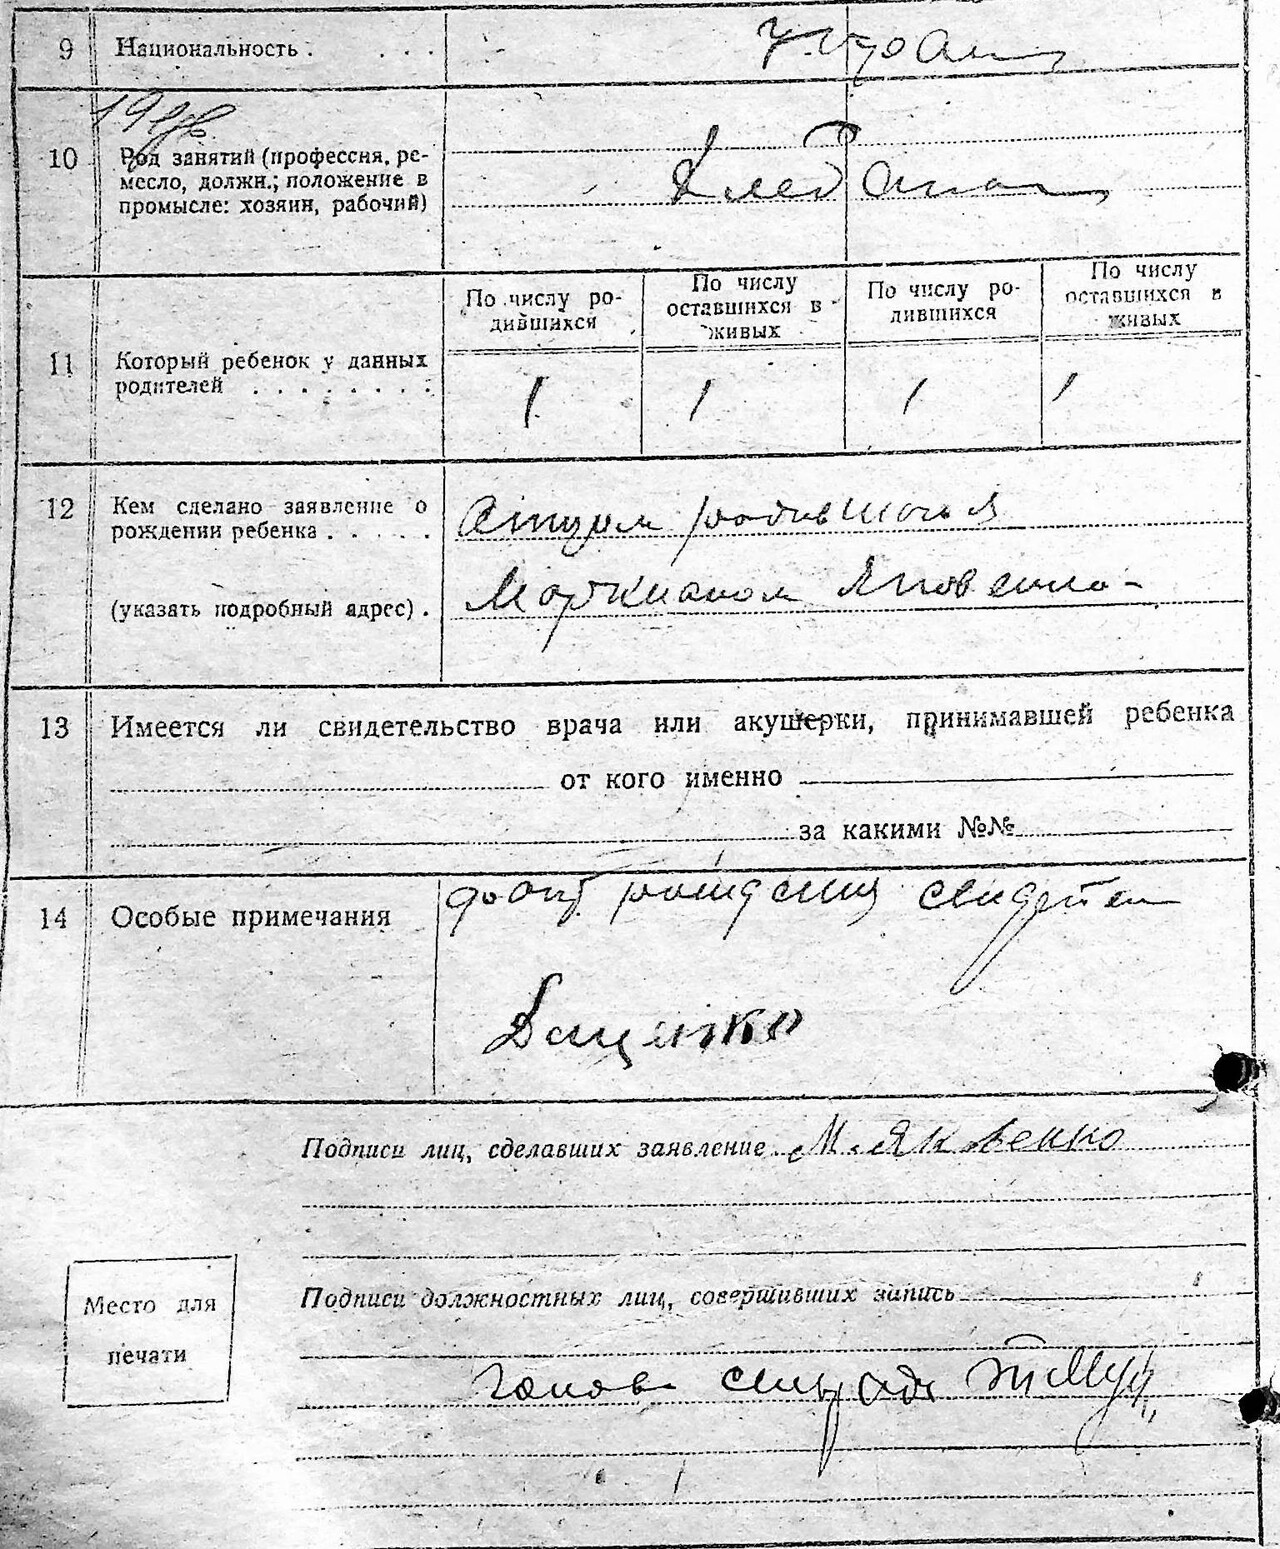 9 Национальность . . . . Украин
10 Род занятий (профессия, ре-
месло, должн.; положение в
промысле: хозяин, рабочий)
По числу ро-
дившихся
По числу
оставшихся в
живых
По числу ро-
дившихся
По числу
оставшихся в
живых
11 Который ребенок у данных
родителей . . . . . . . .
1 1 1 1
12 Кем сделано заявление о
рождении ребенка . . . . .
(указать подробный адрес) .
Маркианом Яковенко
13 Имеется ли свидетельство врача или акушерки, принимавшей ребенка
от кого именно
за какими №№
14 Особые примечания
факт рождения свидетел
Даценко
Подписи лиц, сделавших заявление М. Яковенко
Подписи должностных лиц, совершивших запись
Место для
печати
Голова